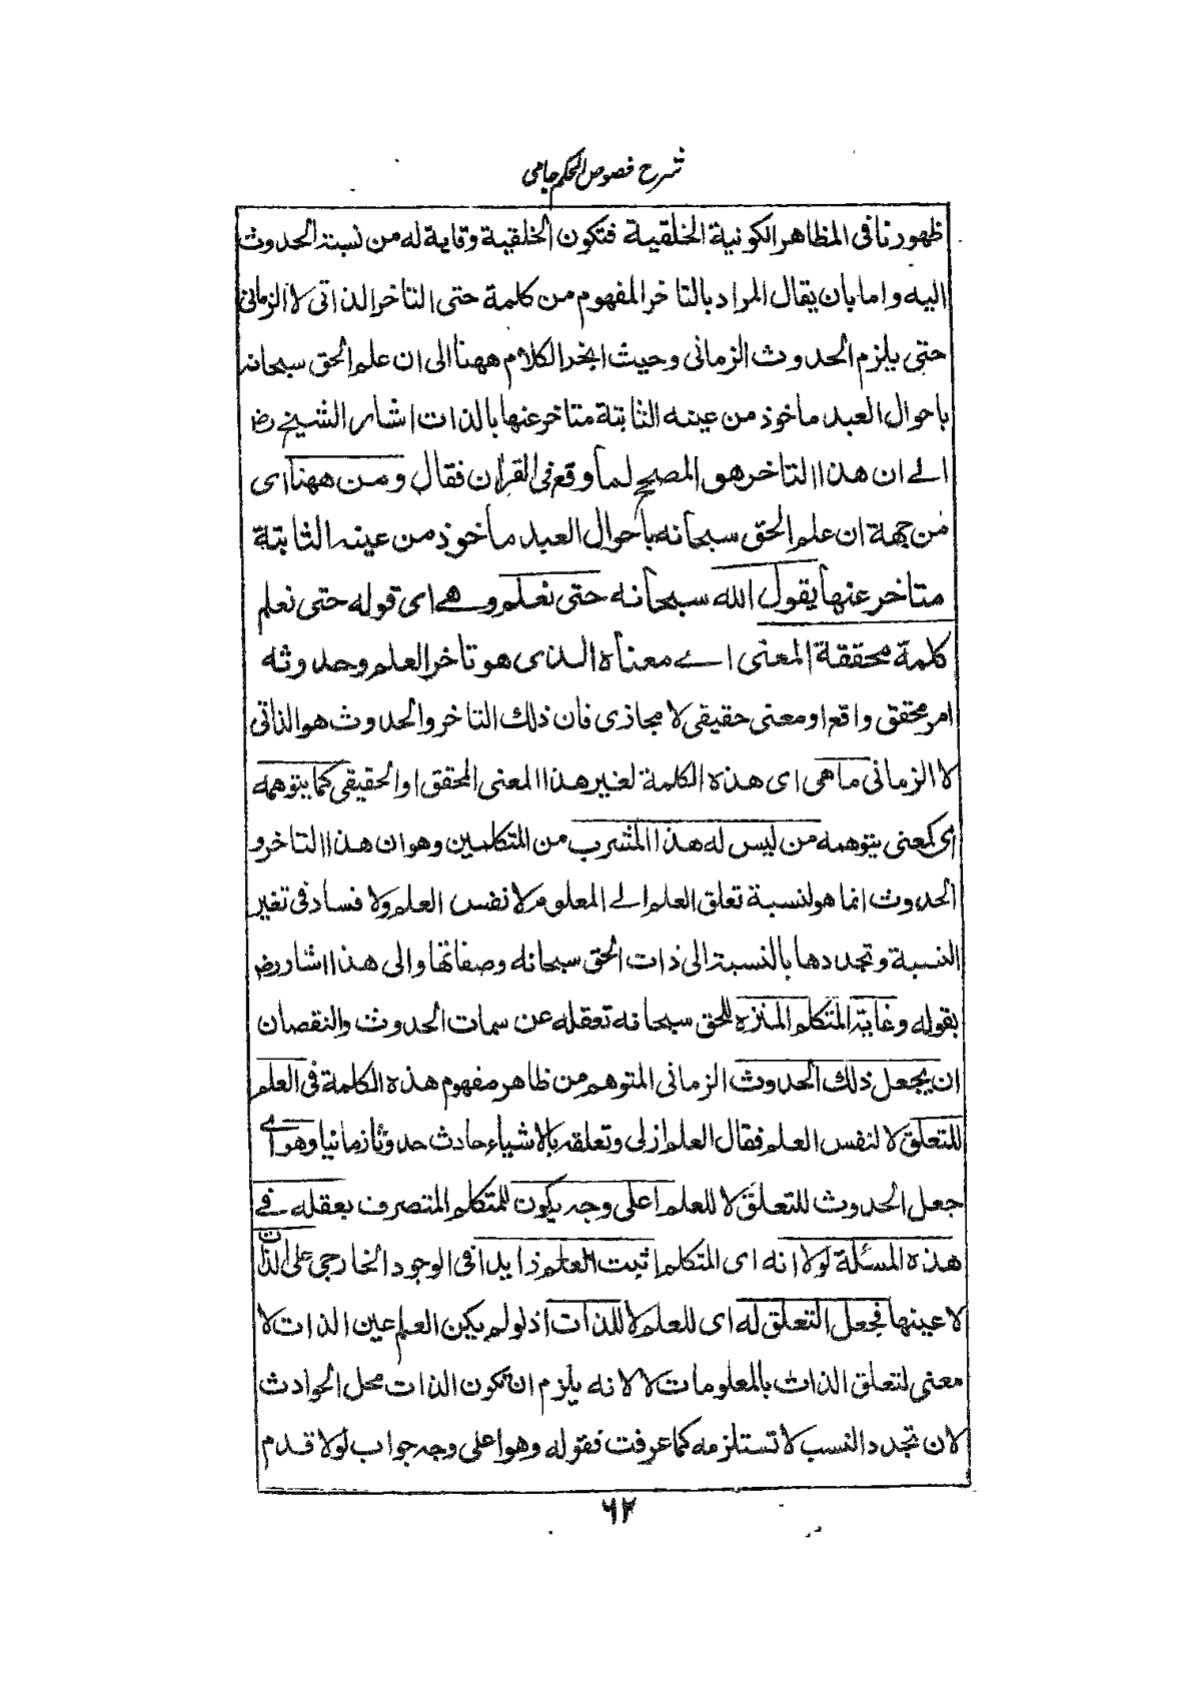 شرح فصوص الحکم جامی
ظهورنا فی المظاهر الکونیة الخلقیة فتکون الخلقیة وقایة له من نسبة الحدوث
الیه واما بان یقال المراد بالتاخر المفهوم من کلمة حتی التاخر الذاتی لا الزمانی
حتی یلزم الحدوث الزمانی وحیث انجر الکلام ههنا الی ان علم الحق سبحانه
باحوال العبد ماخوذ من عینه الثابتة متاخر عنها بالذات اشار الشیخ رض
الے ان هذا التاخر هو المصحح لما وقع فی القران فقال ومن ههنا ای
من جهة ان علم الحق سبحانه باحوال العبد ماخوذ من عینه الثابتة
متاخر عنها یقول الله سبحانه حتی نعلم وهے ای قوله حتی نعلم
کلمة محققة المعنی اے معناه الذی هو تاخر العلم وحدوثه
امر محقق واقع او معنی حقیقی لا مجازی فان ذلك التاخر والحدوث هو الذاتی
لا الزمانی ما هی ای هذه الکلمة لغیر هذا المعنی المحقق او الحقیقی کما یتوهمه
ای کمعنی یتوهمه من لیس له هذا المشرب من المتکلمین وهو ان هذا التاخر و
الحدوث انما هو لنسبة تعلق العلم الے المعلوم لا نفس العلم ولا فساد فی تغیر
النسبة وتجددها بالنسبة الی ذات الحق سبحانه وصفاتها والی هذا اشار رض
بقوله وغایة المتکلم المنزه للحق سبحانه تعقله عن سمات الحدوث والنقصان
ان یجعل ذلك الحدوث الزمانی المتوهم من ظاهر مفهوم هذه الکلمة فی العلم
للتعلق لا لنفس العلم فقال العلم ازلی وتعلقه بالاشیاء حادث حدوثا زمانیا وهو اے
جعل الحدوث للتعلق لا للعلم اعلی وجه یکون للمتکلم المتصرف بعقله فے
هذه المسئلة لولا انه ای المتکلم اثبت العلم زایدا فی الوجود الخارجی علی الذات
لا عینها فجعل التعلق له ای للعلم لا للذات اذ لو لم یکن العلم عین الذات لا
معنی لتعلق الذات بالمعلومات لا لانه یلزم ان تکون الذات محل الحوادث
لان تجدد النسب لا تستلزمه کما عرفت فقوله وهو اعلی وجه جواب لولا قدم
٦٢